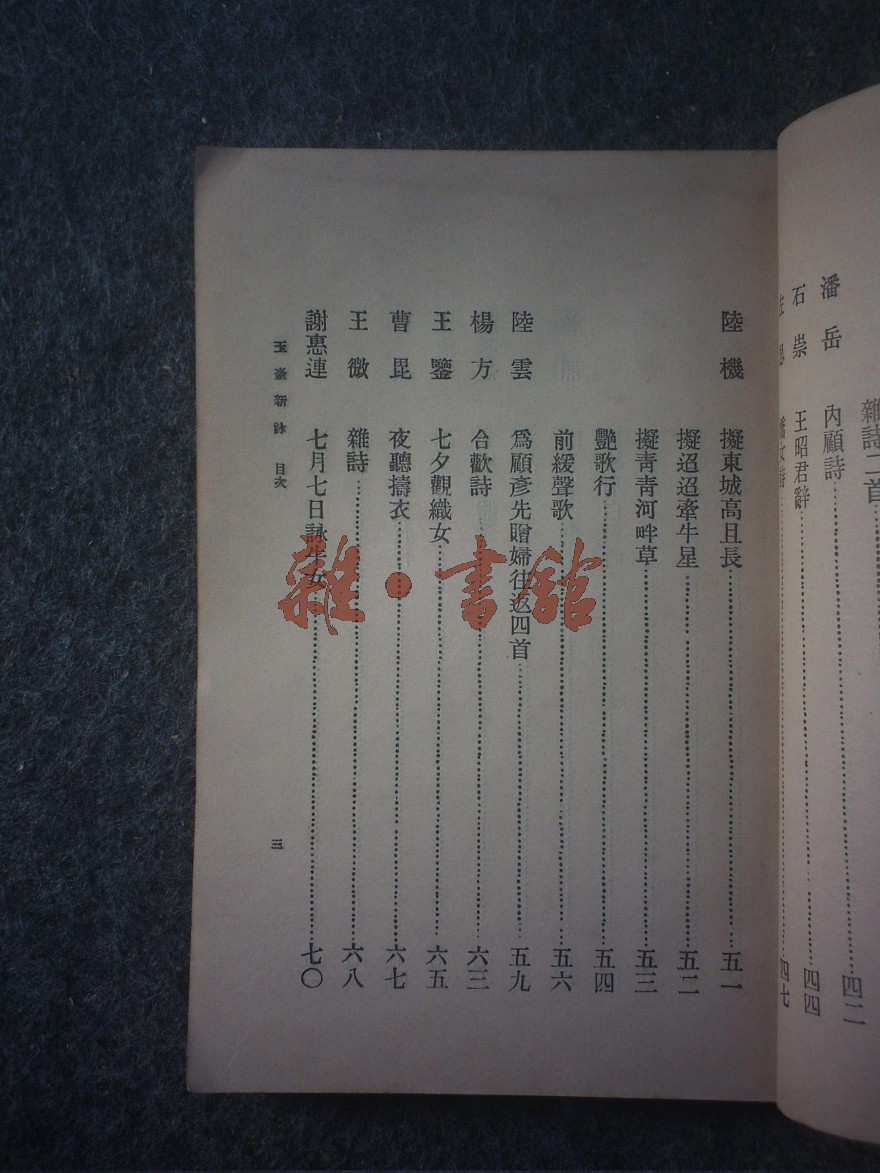 雜詩二首
潘岳 內顧詩 四二
石崇 王昭君辭 四四
左思 嬌女詩 四七
陸機 擬東城高且長 五一
擬迢迢牽牛星 五二
擬青青河畔草 五三
艷歌行 五四
前緩聲歌 五六
陸雲 爲顧彥先贈婦往返四首 五九
楊方 合歡詩 六三
王鑒 七夕觀織女 六五
曹毘 夜聽擣衣 六七
王微 雜詩 六八
謝惠連 七月七日詠牛女 七〇
玉臺新詠 目次 三
雜·書舘